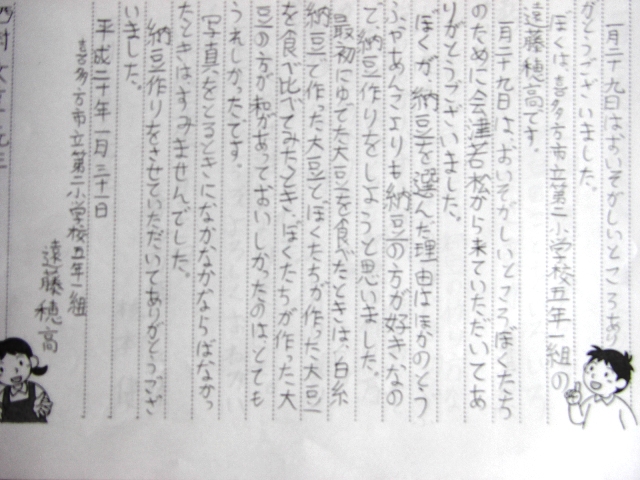 一月二十九日はおいそがしいところあり
がとうございました。
ぼくは喜多方市立第二小学校五年一組の
遠藤穂高です。
一月二十九日は、おいそがしいところぼくたち
のために会津若松から来ていただいてあ
りがとうございました。
ぼくが、納豆を選んだ理由はほかのとう
ふやあんこよりも納豆の方が好きなの
で、納豆作りをしようと思いました。
最初にゆでた大豆を食べたときは、白糸
納豆で作った大豆とぼくたちが作った大豆
を食べ比べてみたとき、ぼくたちが作った大
豆の方が和があっておいしかったのはとても
うれしかったです。
写真をとるときになかなかならばなかっ
たときはすみませんでした。
納豆作りをさせていただいてありがとうござ
いました。
平成二十年一月三十一日
喜多方市立第二小学校五年一組
遠藤穂高